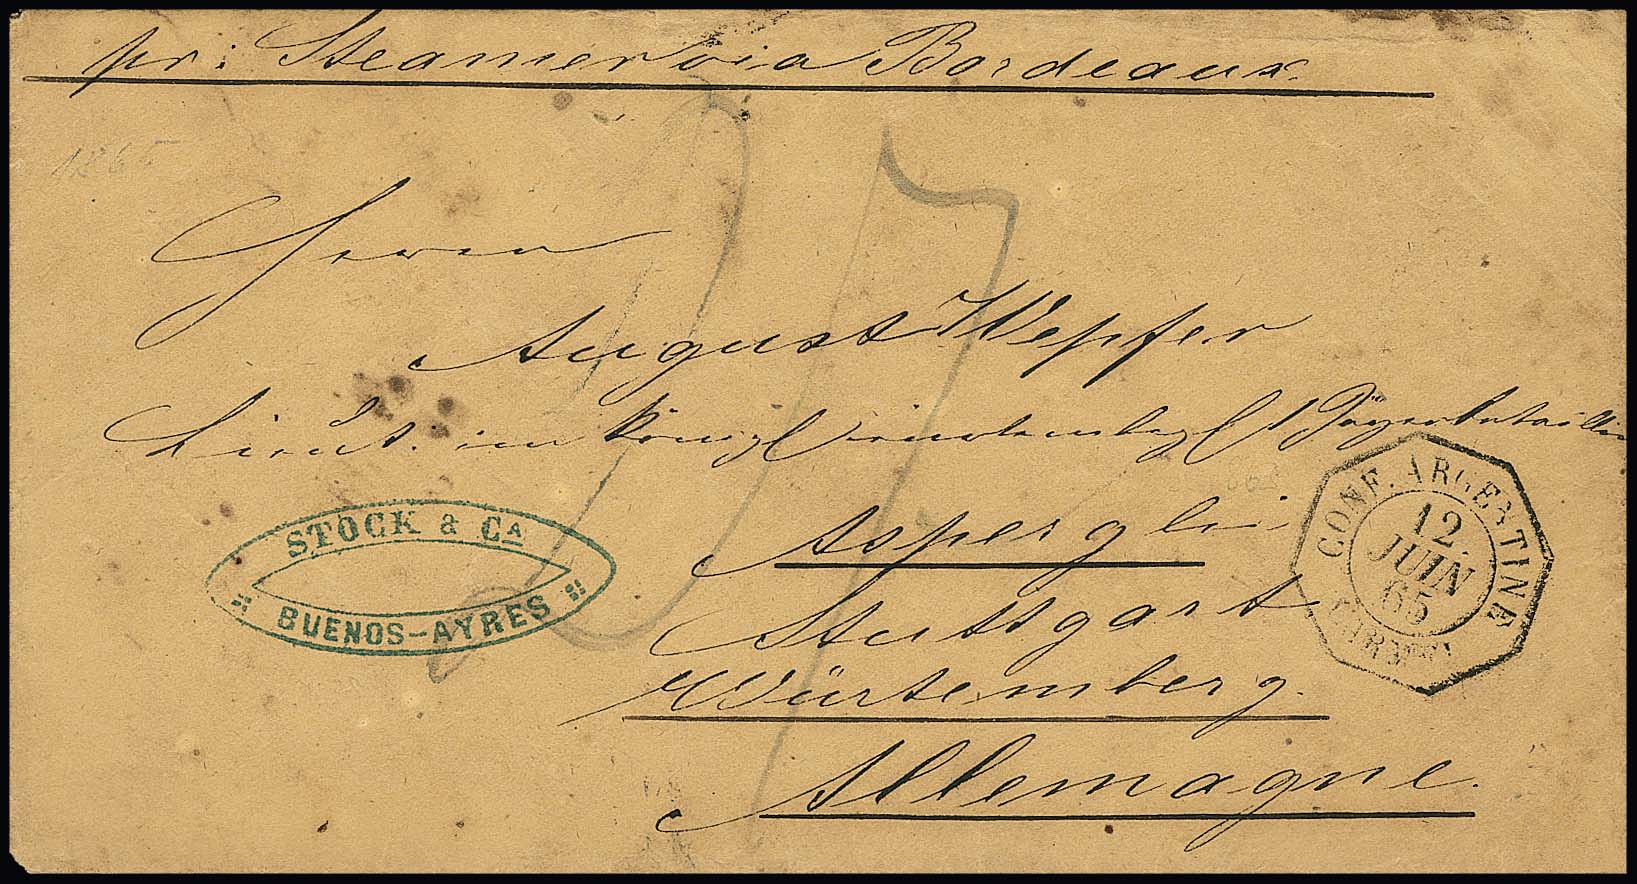 pr: Steamer via Bordeaux.
1865
27
Herrn
August Wepfer
Lieut. im königl württembergl 1 Jägerbataillon
Asperg bei
Stuttgart
Würtemberg.
Allemagne.
STOCK & CA
BUENOS-AYRES
CONF. ARGENTINE
12
JUIN
65